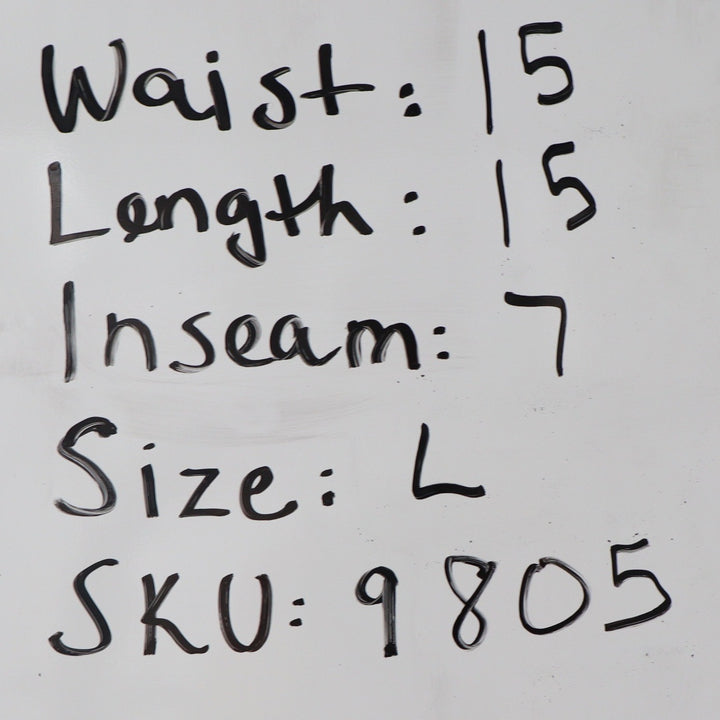 Waist: 15
Length: 15
Inseam: 7
Size: L
SKU: 9805